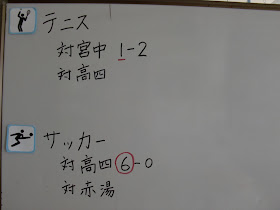 テニス
対宮中 1-2
対高四
サッカー
対高四 6-0
対赤湯